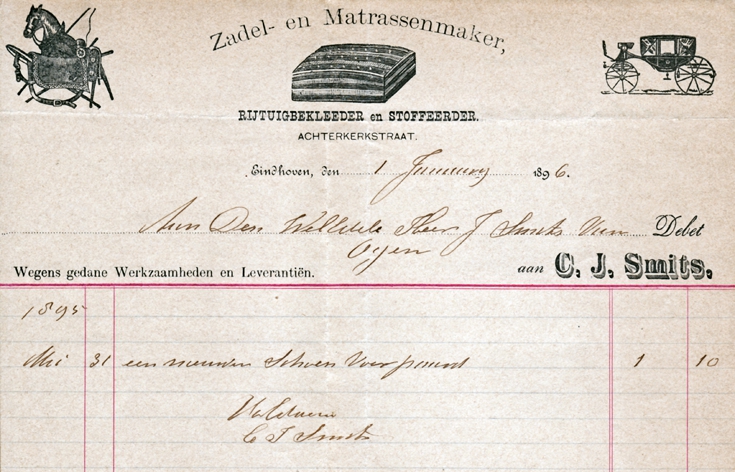 Zadel- en Matrassenmaker,
RIJTUIGBEKLEEDER en STOFFEERDER.
ACHTERKERKSTRAAT.
Eindhoven, den 1 January 1896.
Aan Den Heer J Smits Van Debet
Oyen
Wegens gedane Werkzaamheden en Leverantiën. aan C. J. Smits.
1895
Mei 31 een nieuwen Schoen Voor paard 1 10
Voldaan
C J Smits